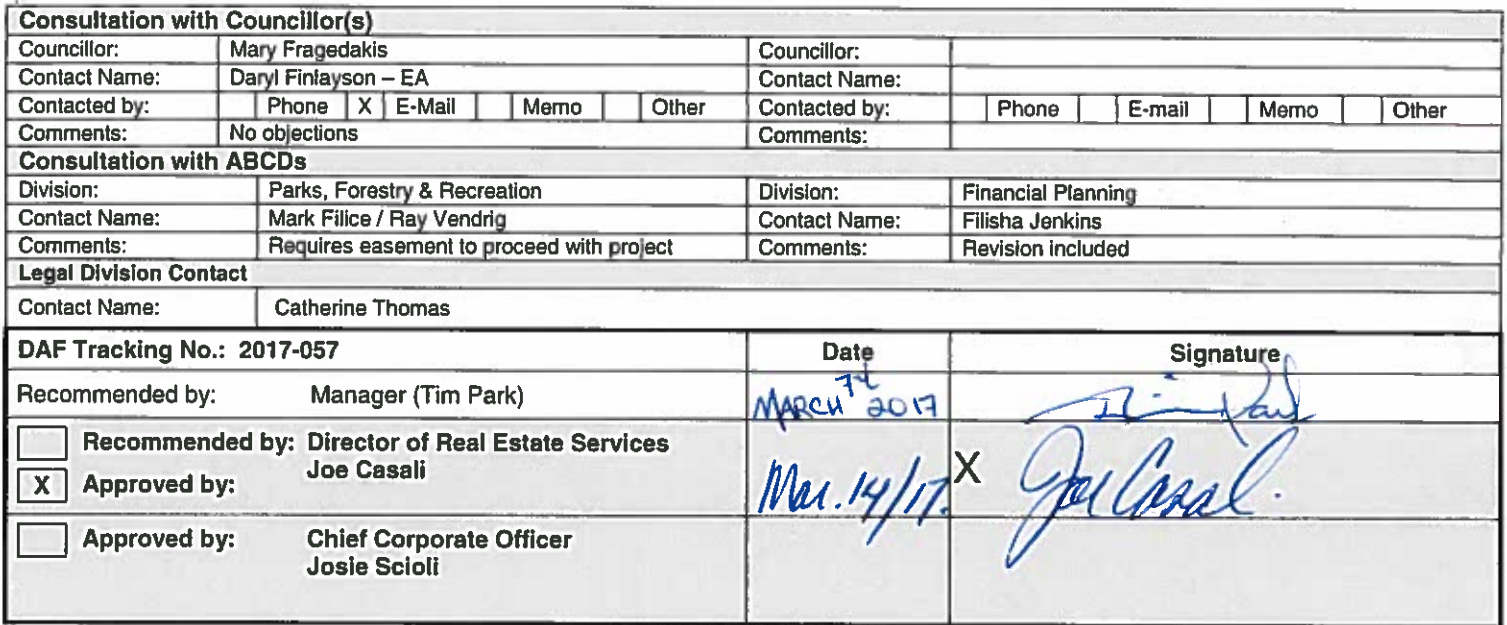 Consultation with Councillor(s)
Councillor: Mary Fragedakis Councillor:
Contact Name: Daryl Finlayson – EA Contact Name:
Contacted by: Phone X E-Mail Memo Other Contacted by: Phone E-mail Memo Other
Comments: No objections Comments:
Consultation with ABCDs
Division: Parks, Forestry & Recreation Division: Financial Planning
Contact Name: Mark Filice / Ray Vendrig Contact Name: Filisha Jenkins
Comments: Requires easement to proceed with project Comments: Revision included
Legal Division Contact
Contact Name: Catherine Thomas
DAF Tracking No.: 2017-057 Date Signature
Recommended by: Manager (Tim Park) MARCH 7th 2017 Tim Park
Recommended by: Director of Real Estate Services
Joe Casali
X Approved by: Mar. 14/17. X Joe Casali.
Approved by: Chief Corporate Officer
Josie Scioli